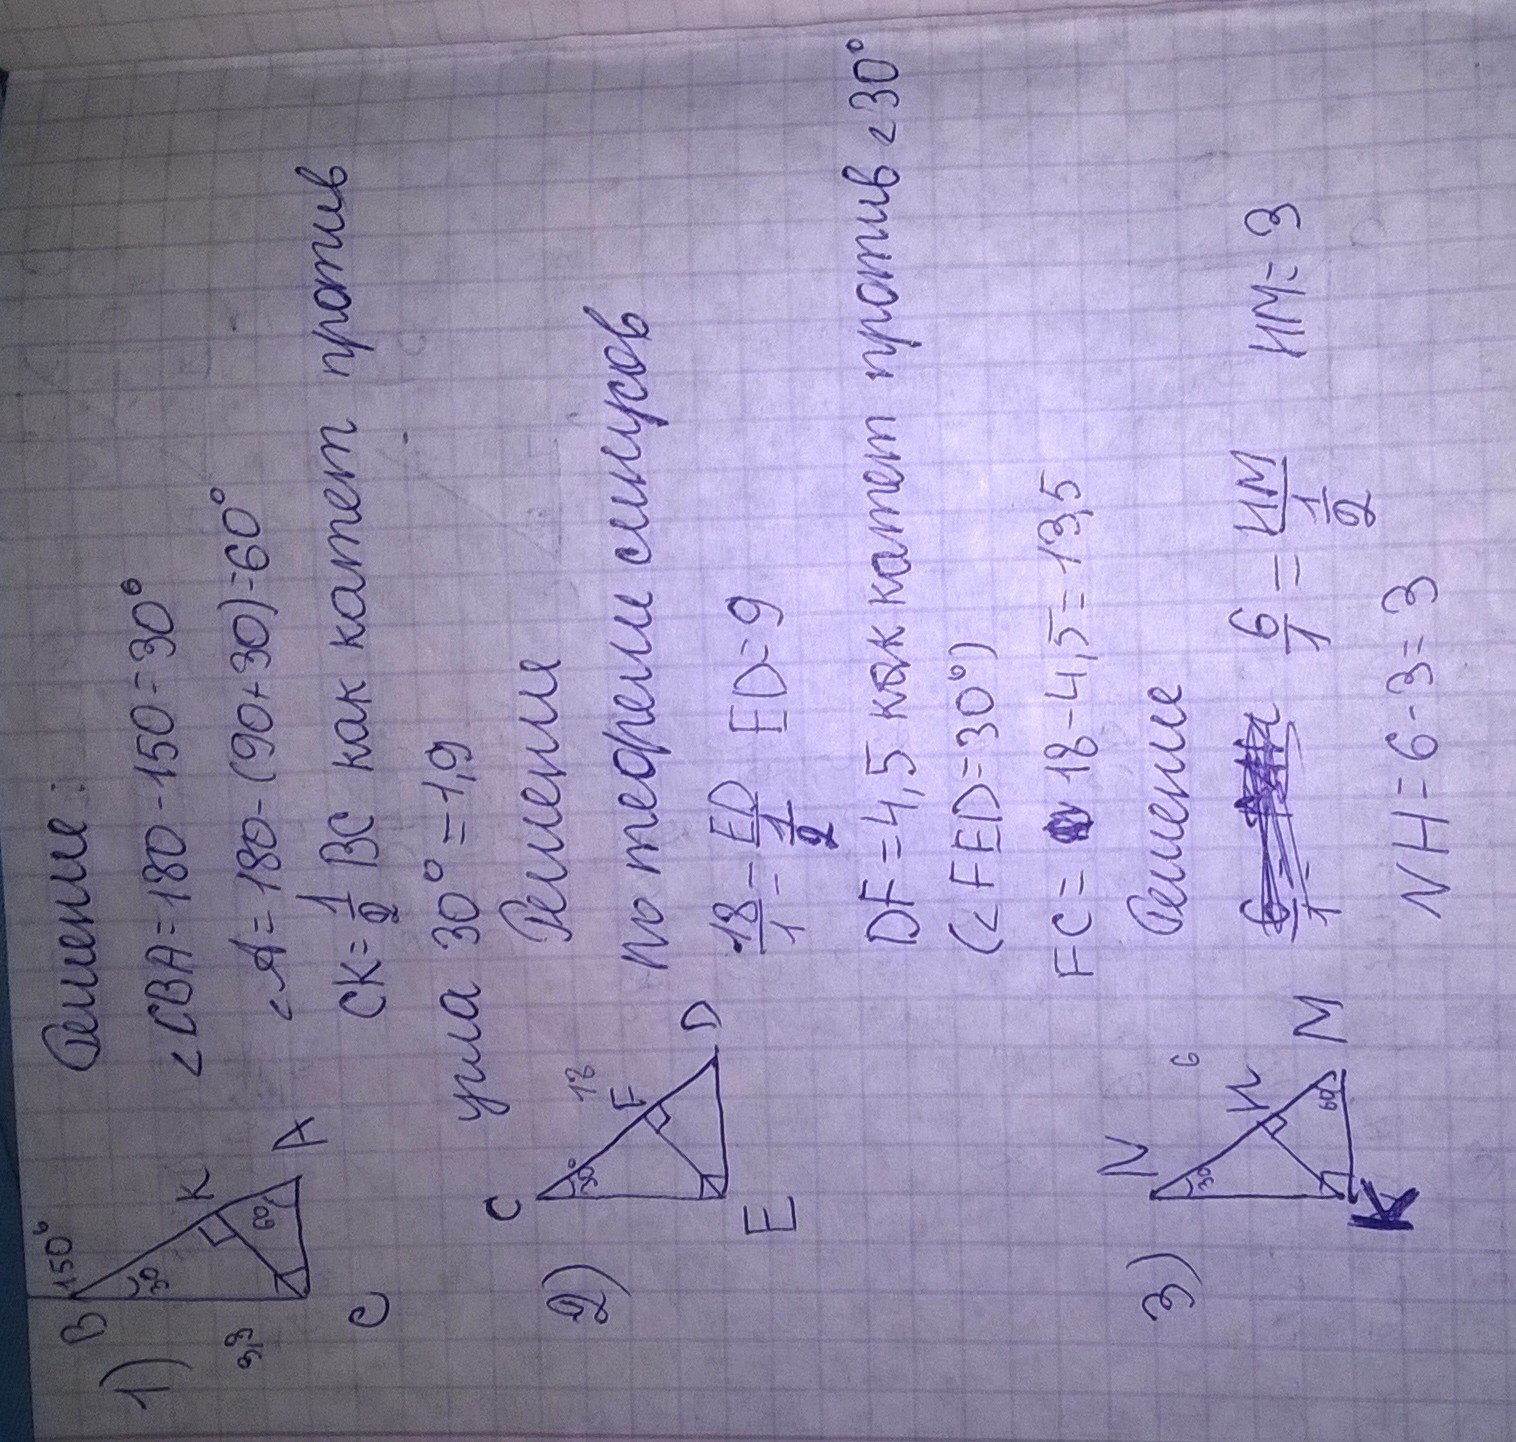 1)
B
150°
30
K
60
A
3,9
C
Решение:
<CBA=180-150=30°
<A=180-(90+30)=60°
CK=1/2 BC как катет против
угла 30°=1,9
2)
C
30°
18
F
D
E
Решение
по теореме синусов
18/1=ED/(1/2) ED=9
DF=4,5 как катет против <30°
(<FED=30°)
FC=18-4,5=13,5
3)
N
30
6
H
60
M
K
Решение
6/1=HM/(1/2) HM=3
NH=6-3=3